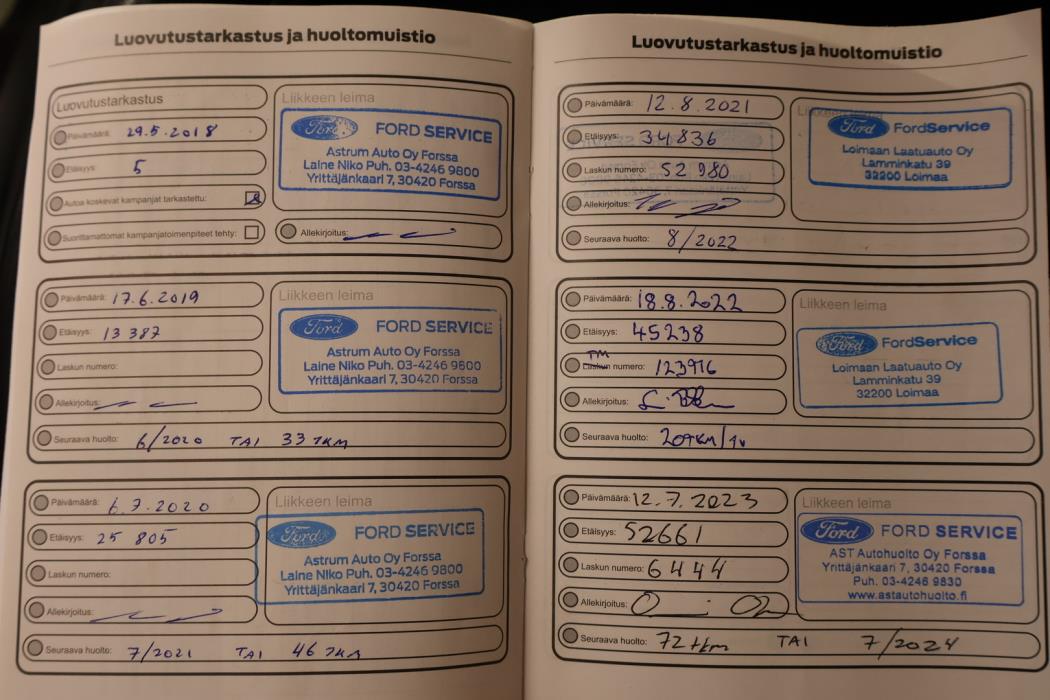 Luovutustarkastus ja huoltomuistio
Luovutustarkastus
Päivämäärä: 29.5.2018
Etäisyys: 5
Autoa koskevat kampanjat tarkastettu:
Suorittamattomat kampanjatoimenpiteet tehty:
Liikkeen leima
Ford FORD SERVICE
Astrum Auto Oy Forssa
Laine Niko Puh. 03-4246 9800
Yrittäjänkaari 7, 30420 Forssa
Allekirjoitus:
Päivämäärä: 17.6.2019
Etäisyys: 13 387
Laskun numero:
Allekirjoitus:
Liikkeen leima
Ford FORD SERVICE
Astrum Auto Oy Forssa
Laine Niko Puh. 03-4246 9800
Yrittäjänkaari 7, 30420 Forssa
Seuraava huolto: 6/2020 TAI 33 TKM
Päivämäärä: 6.7.2020
Etäisyys: 25 805
Laskun numero:
Allekirjoitus:
Liikkeen leima
Ford FORD SERVICE
Astrum Auto Oy Forssa
Laine Niko Puh. 03-4246 9800
Yrittäjänkaari 7, 30420 Forssa
Seuraava huolto: 7/2021 TAI 46 TKM
Luovutustarkastus ja huoltomuistio
Päivämäärä: 12.8.2021
Etäisyys: 34836
Laskun numero: 52 980
Allekirjoitus:
Liikkeen leima
Ford FordService
Loimaan Laatuauto Oy
Lamminkatu 39
32200 Loimaa
Seuraava huolto: 8/2022
Päivämäärä: 18.8.2022
Etäisyys: 45238
TM
Laskun numero: 123916
Allekirjoitus:
Liikkeen leima
Ford FordService
Loimaan Laatuauto Oy
Lamminkatu 39
32200 Loimaa
Seuraava huolto: 20TKM/1v
Päivämäärä: 12.7.2023
Etäisyys: 52661
Laskun numero: 6444
Allekirjoitus:
Liikkeen leima
Ford FORD SERVICE
AST Autohuolto Oy Forssa
Yrittäjänkaari 7, 30420 Forssa
Puh. 03-4246 9830
www.astautohuolto.fi
Seuraava huolto: 72 tkm TAI 7/2024